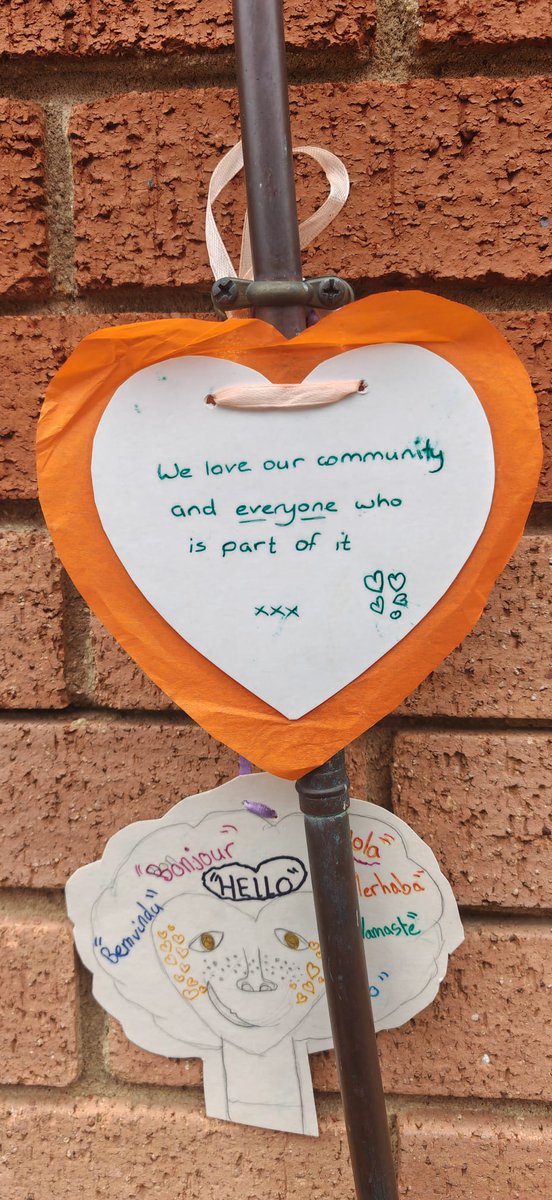 We love our community
and everyone who
is part of it
xxx
"Bonjour"
"HELLO"
ola"
erhaba"
amaste"
"Bemvindu"
o"